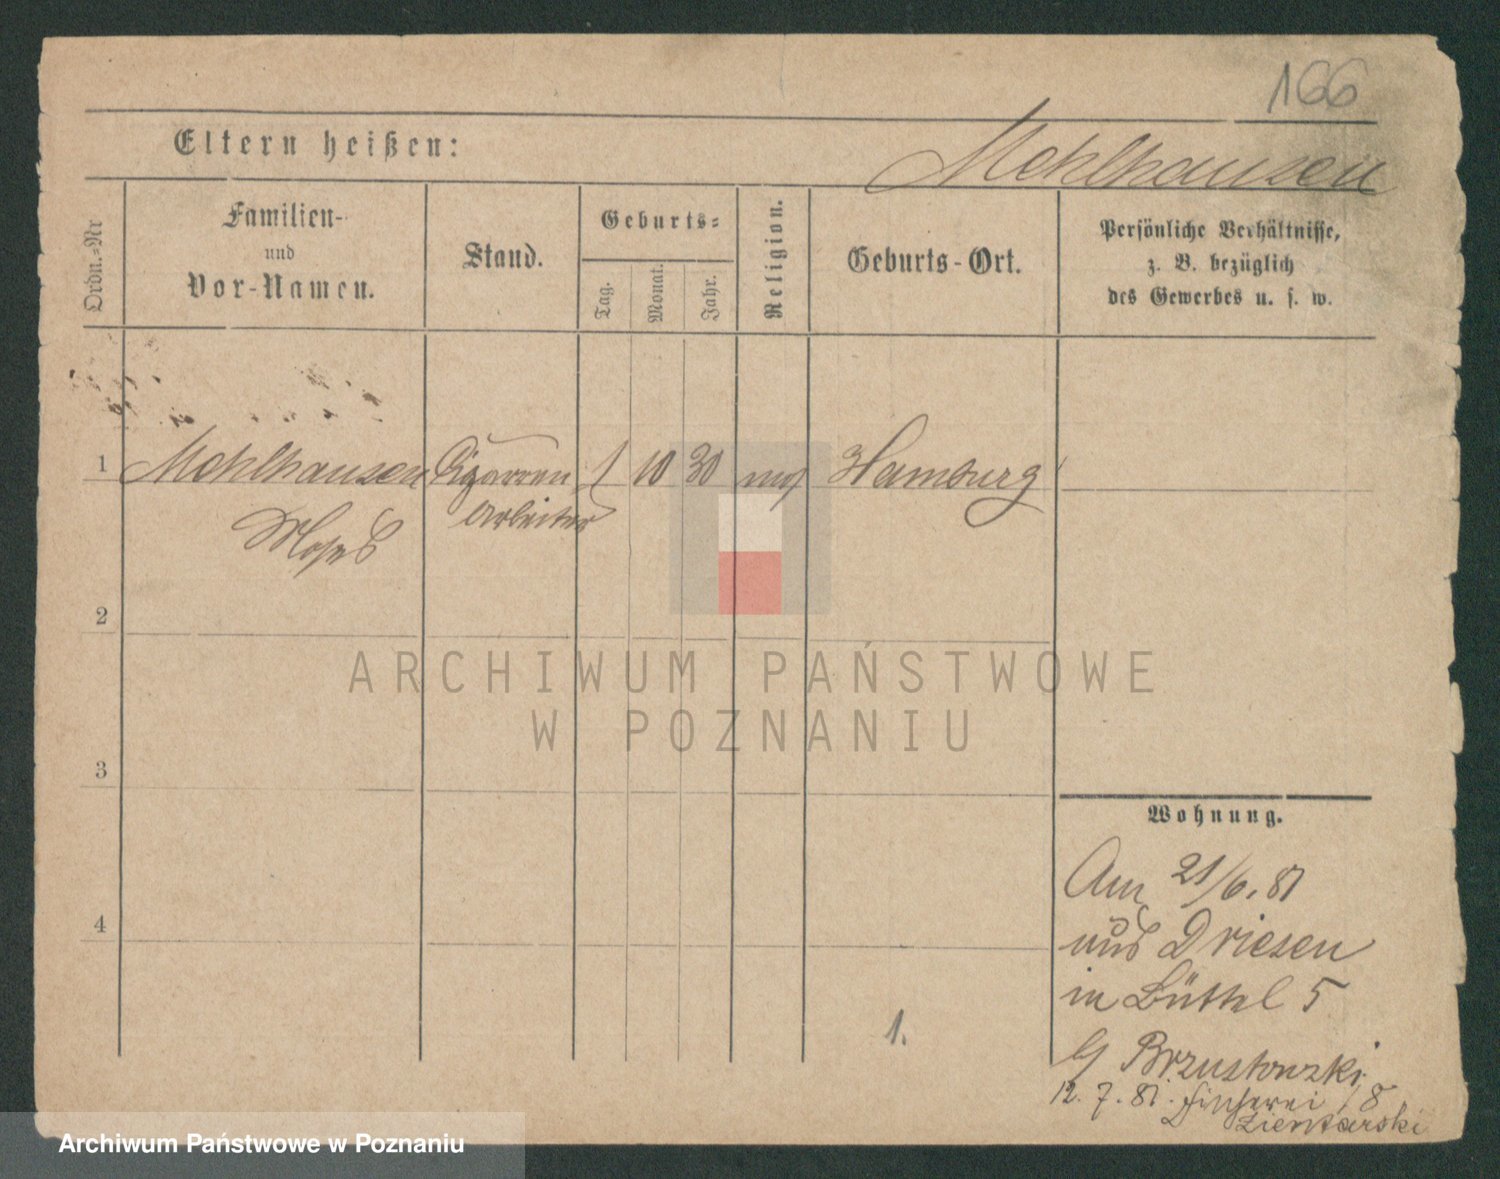 166
Eltern heißen:
Mehlhausen
Ordn.-Nr
Familien-
und
Vor-Namen.
Stand.
Geburts-
Tag.
Monat.
Jahr.
Religion.
Geburts-Ort.
Persönliche Verhältnisse,
z. B. bezüglich
des Gewerbes u. s. w.
1 Mehlhausen Cigarren 1 10 30 mos Hamburg
Moses arbeiter
2
3
4
ARCHIWUM PAŃSTWOWE
W POZNANIU
Wohnung.
Am 21/6. 81
aus Driesen
in Büttel 5
b/ Brzustowzki
12. 7. 81. Fischerei 18
Zientarski
1.
Archiwum Państwowe w Poznaniu